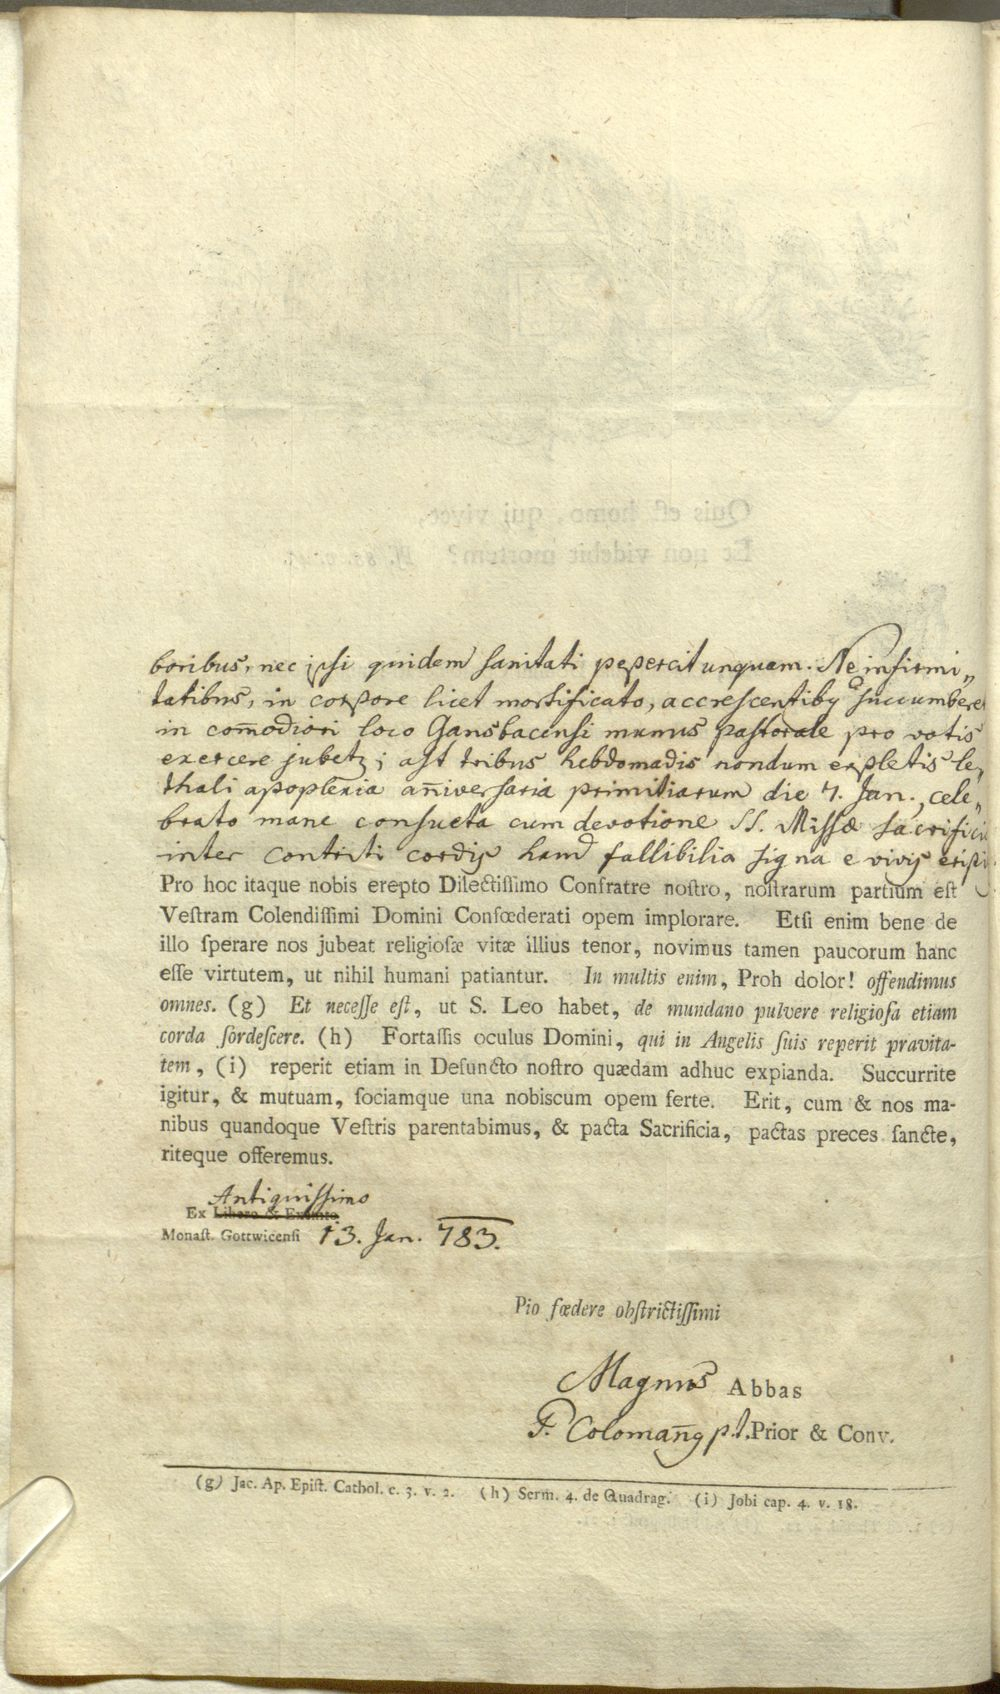 boribus, nec ipsi quidem sanitati pepercit unquam. Ne infirmi„
tatibus, in corpore licet mortificato, accrescentibꝫ succumberet
in com̄odiori loco Gansbacensi munus pastorale pro votis
exercere jubetꝫ; ast tribus hebdomadis nondum expletis le„
thali apoplexia an̄iversaria primitiarum die 7. Jan., cele„
brato mane consueta cum devotione SS. Missæ sacrificio
inter contriti cordis haud fallibilia signa e vivis eripi
Pro hoc itaque nobis erepto Dilectiſſimo Confratre noſtro, noſtrarum partium eſt
Veſtram Colendiſſimi Domini Confœderati opem implorare. Etſi enim bene de
illo ſperare nos jubeat religioſæ vitæ illius tenor, novimus tamen paucorum hanc
eſſe virtutem, ut nihil humani patiantur. In multis enim, Proh dolor! offendimus
omnes. (g) Et neceſſe eſt, ut S. Leo habet, de mundano pulvere religioſa etiam
corda ſordeſcere. (h) Fortaſſis oculus Domini, qui in Angelis ſuis reperit pravita-
tem, (i) reperit etiam in Defuncto noſtro quædam adhuc expianda. Succurrite
igitur, & mutuam, ſociamque una nobiscum opem ferte. Erit, cum & nos ma-
nibus quandoque Veſtris parentabimus, & pacta Sacrificia, pactas preces ſancte,
riteque offeremus.
Antiquissimo
Ex Libero & Exemto
Monaſt. Gottwicenſi 13. Jan. 783.
Pio fœdere obſtrictiſſimi
Magnus Abbas
P. Coloman̄ꝫ p.t. Prior & Conv.
(g) Jac. Ap. Epiſt. Cathol. c. 3. v. 2. (h) Serm. 4. de Quadrag. (i) Jobi cap. 4. v. 18.
Quis eſt homo, qui vivet,
Et non videbit mortem?